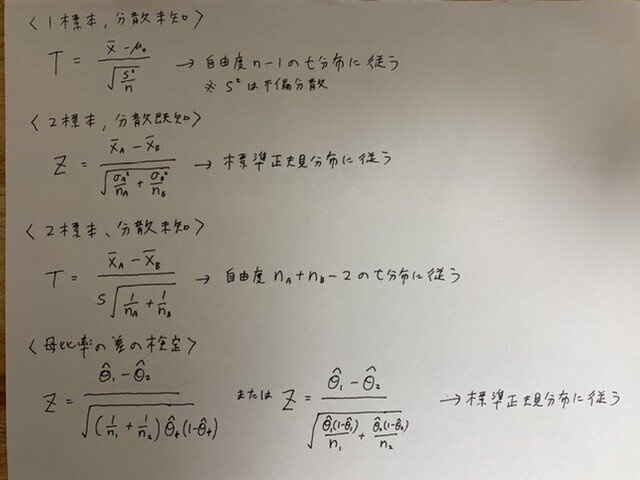 〈1標本,分散未知〉
T = (x̄ - μ₀) / √(s²/n) → 自由度 n-1 のt分布に従う
※ S² は不偏分散
〈2標本,分散既知〉
Z = (x̄_A - x̄_B) / √(σ_A²/n_A + σ_B²/n_B) → 標準正規分布に従う
〈2標本、分散未知〉
T = (x̄_A - x̄_B) / (S√(1/n_A + 1/n_B)) → 自由度 n_A+n_B-2 のt分布に従う
〈母比率の差の検定〉
Z = (θ̂₁ - θ̂₂) / √((1/n₁ + 1/n₂)θ̂₊(1-θ̂₊)) または Z = (θ̂₁ - θ̂₂) / √(θ̂₁(1-θ̂₁)/n₁ + θ̂₂(1-θ̂₂)/n₂) → 標準正規分布に従う